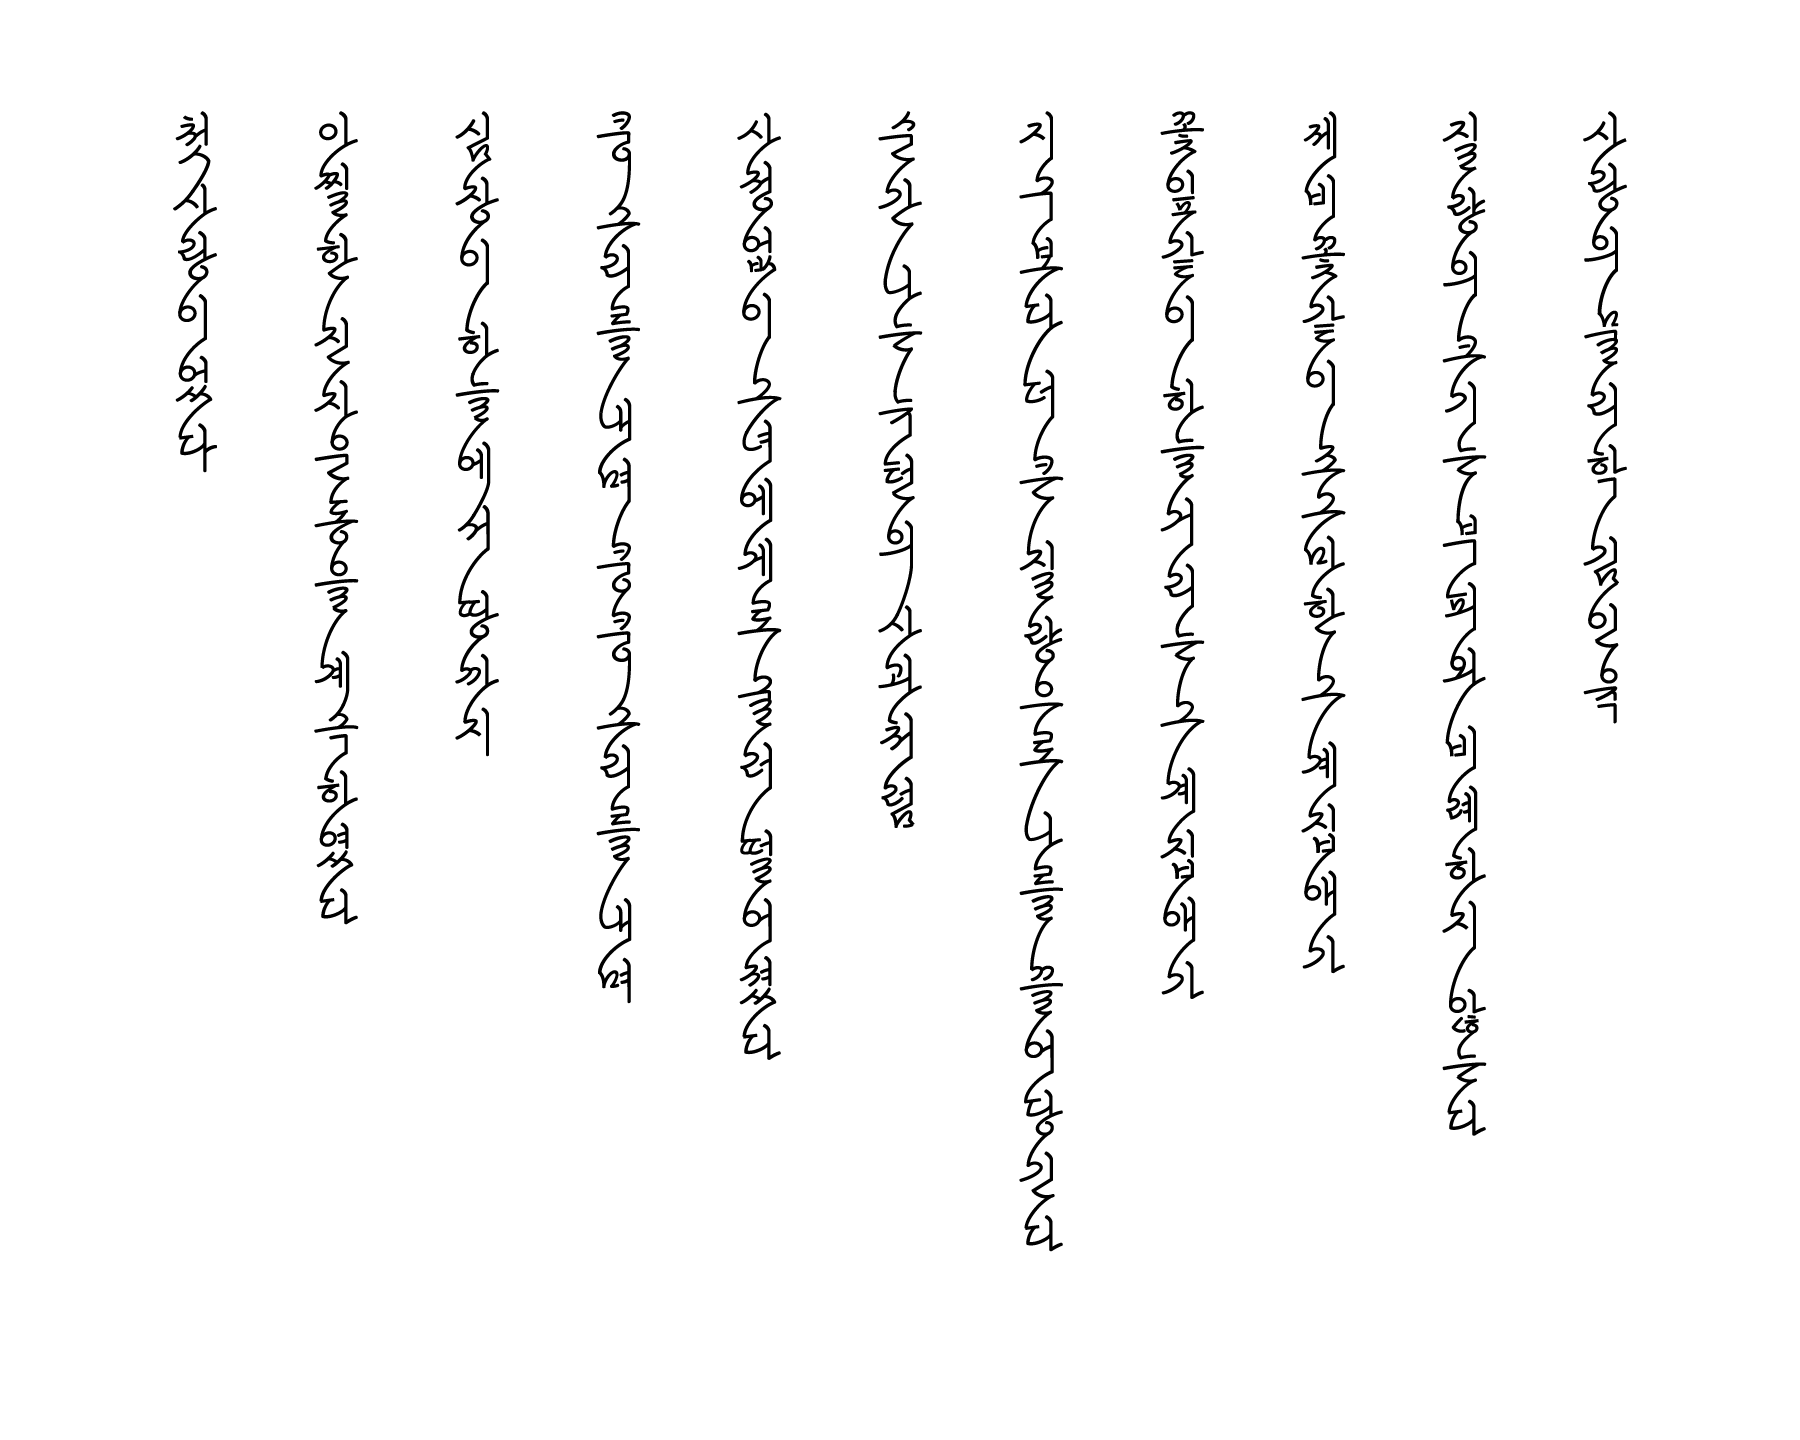 사랑의 물리학 김인육
질량의 크기는 부피와 비례하지 않는다
제비꽃같이 조그마한 그 계집애가
꽃잎같이 하늘거리는 그 계집애가
지구보다 더 큰 질량으로 나를 끌어당긴다
순간 나는 뉴턴의 사과처럼
사정없이 그녀에게로 굴러 떨어졌다
쿵 소리를 내며 쿵쿵 소리를 내며
심장이 하늘에서 땅까지
아찔한 진자운동을 계속하였다
첫사랑이었다